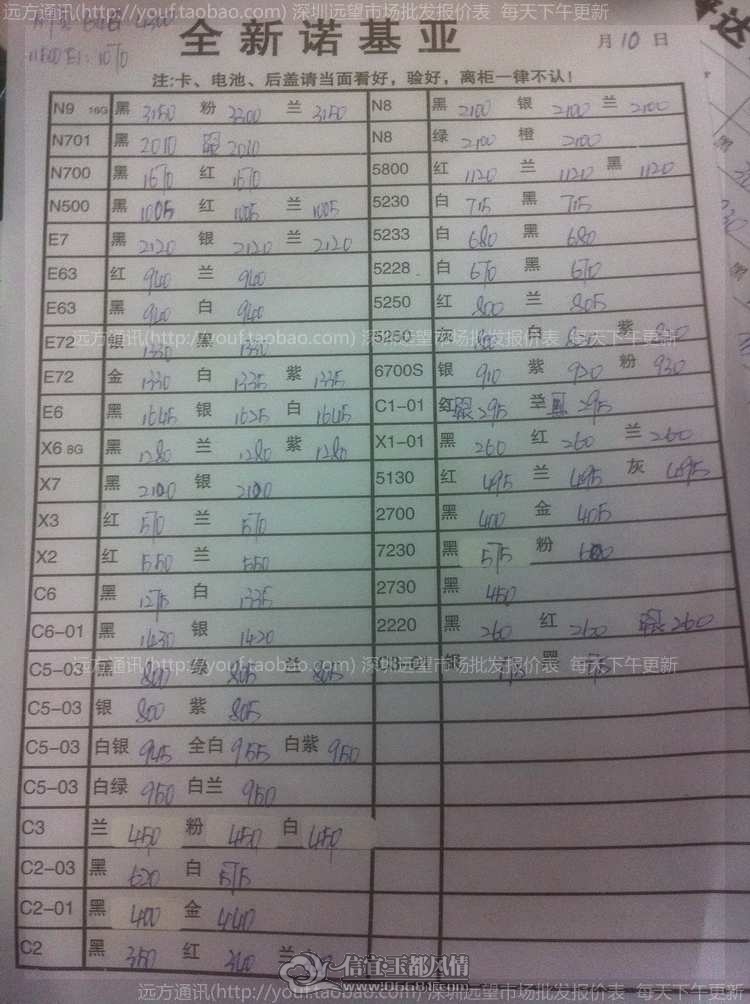 远方通讯(http://youf.taobao.com) 深圳远望市场批发报价表 每天下午更新
全新诺基亚
月10日
注:卡、电池、后盖请当面看好，验好，离柜一律不认!
N9 16G 黑 3150 粉 3300 兰 3150
N8 黑 2100 银 2100 兰 2100
N701 黑 2010 银 2010
N8 绿 2100 橙 2100
N700 黑 1570 红 1570
5800 红 1120 兰 1120 黑 1120
N500 黑 1005 红 1005 兰 1005
5230 白 715 黑 715
E7 黑 2120 银 2120 兰 2120
5233 白 680 黑 680
E63 红 940 兰 940
5228 白 670 黑 670
E63 黑 940 白 940
5250 红 800 兰 805
远方通讯(http://youf.taobao.com) 深圳远望市场批发报价表 每天下午更新
E72 银 1330 黑 1330
5250 灰 白 紫
E72 金 1330 白 1335 紫 1335
6700S 银 910 紫 930 粉 930
E6 黑 1645 银 1625 白 1645
C1-01 红 银 295 兰 黑 295
X6 8G 黑 1280 兰 1280 紫 1280
X1-01 黑 260 红 260 兰 260
X7 黑 2100 银 2100
5130 红 495 兰 495 灰 495
X3 红 570 兰 570
2700 黑 400 金 405
X2 红 550 兰 550
7230 黑 575 粉 600
C6 黑 1275 白 1335
2730 黑 450
C6-01 黑 1430 银 1420
2220 黑 260 红 260 银 260
C5-03 黑 800 绿 805 兰 805
C3-01 银 黑
远方通讯(http://youf.taobao.com) 深圳远望市场批发报价表 每天下午更新
C5-03 银 800 紫 805
C5-03 白银 945 全白 955 白紫 950
C5-03 白绿 950 白兰 950
C3 兰 450 粉 450 白 450
C2-03 黑 620 白 575
C2-01 黑 400 金 440
C2 黑 350 红 340 兰
信宜玉都风情
www.0668.com
远方通讯(http://youf.taobao.com) 深圳远望市场批发报价表 每天下午更新